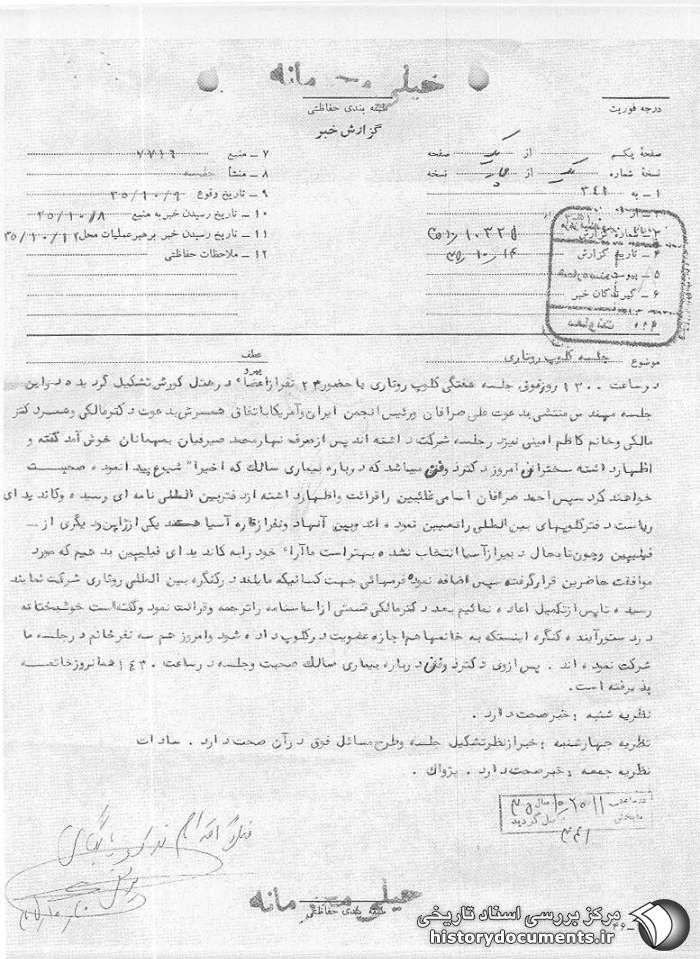 خیلی محرمانه
طبقه بندی حفاظتی
درجه فوریت
گزارش خبر
صفحهٔ یکم از یک صفحه
نسخهٔ شماره یک از چهار نسخه
۱ـ به ۳۴۱
۲ـ از
۳ـ شماره گزارش ۱۰۳۲۵
۴ـ تاریخ گزارش ۳۵/۱۰/۱۴
۵ـ پیوست
۶ـ گیرندگان خبر
۷ـ منبع ۷۷۱۶
۸ـ منشأ جلسه
۹ـ تاریخ وقوع ۳۵/۱۰/۹
۱۰ـ تاریخ رسیدن خبر به منبع ۳۵/۱۰/۸
۱۱ـ تاریخ رسیدن خبر برهبر عملیات محل ۳۵/۱۰/۱۲
۱۲ـ ملاحظات حفاظتی
موضوع جلسه کلوپ روتاری
عطف
پیرو
در ساعت ۱۳۰۰ روز فوق جلسه هفتگی کلوپ روتاری با حضور ۲۴ نفر از اعضاء در هتل کورش تشکیل گردیده در این
جلسه مهندس منتشی بدعوت علی صرافان ورئیس انجمن ایران وآمریکا باتفاق همسرش بدعوت دکتر مالکی وهمسر دکتر
مالکی وخانم کاظم امینی نیز در جلسه شرکت داشته اند پس از صرف نهار محمد صیرفیان بمهمانان خوش آمد گفته و
اظهار داشته سخنرانی امروز دکتر وفق میباشد که درباره بیماری سالک که اخیرا" شیوع پیدا نموده صحبت
خواهند کرد سپس احمد صرافان اسامی غائبین را قرائت واظهار داشته از دفتر بین المللی نامه ای رسیده وکاندیدای
ریاست دفتر کلوپهای بین المللی را تعیین نموده اند وبین آنها دونفر از قاره آسیا هستند یکی از ژاپن ودیگری از ـ
فیلیپین وچون تا بحال دبیر از آسیا انتخاب نشده بهتر است ما آراء خود را به کاندیدای فیلیپین بدهیم که مورد
موافقت حاضرین قرار گرفته سپس اضافه نموده فرمهائی جهت کسانیکه مایلند در کنگره بین المللی روتاری شرکت نمایند
رسیده تا پس از تکمیل اعاده نمائیم بعد دکتر مالکی قسمتی از اساسنامه را ترجمه وقرائت نمود وگفته است خوشبختانه
در دستور آینده کنگره اینستکه به خانمها هم اجازه عضویت در کلوپ داده شود وامروز هم سه نفر خانم در جلسه ما
شرکت نموده اند . پس ازوی دکتر وفق درباره بیماری سالک صحبت وجلسه در ساعت ۱۴۳۰ همانروز خاتمه
پذیرفته است.
نظریه شنبه : خبر صحت دارد .
نظریه چهارشنبه : خبر از نظر تشکیل جلسه وطرح مسائل فوق در آن صحت دارد . سادات
نظریه جمعه : خبر صحت دارد . پژواک .
۳۴۱
خیلی محرمانه
طبقه بندی حفاظتی
مرکز بررسی اسناد تاریخی
historydocuments.ir